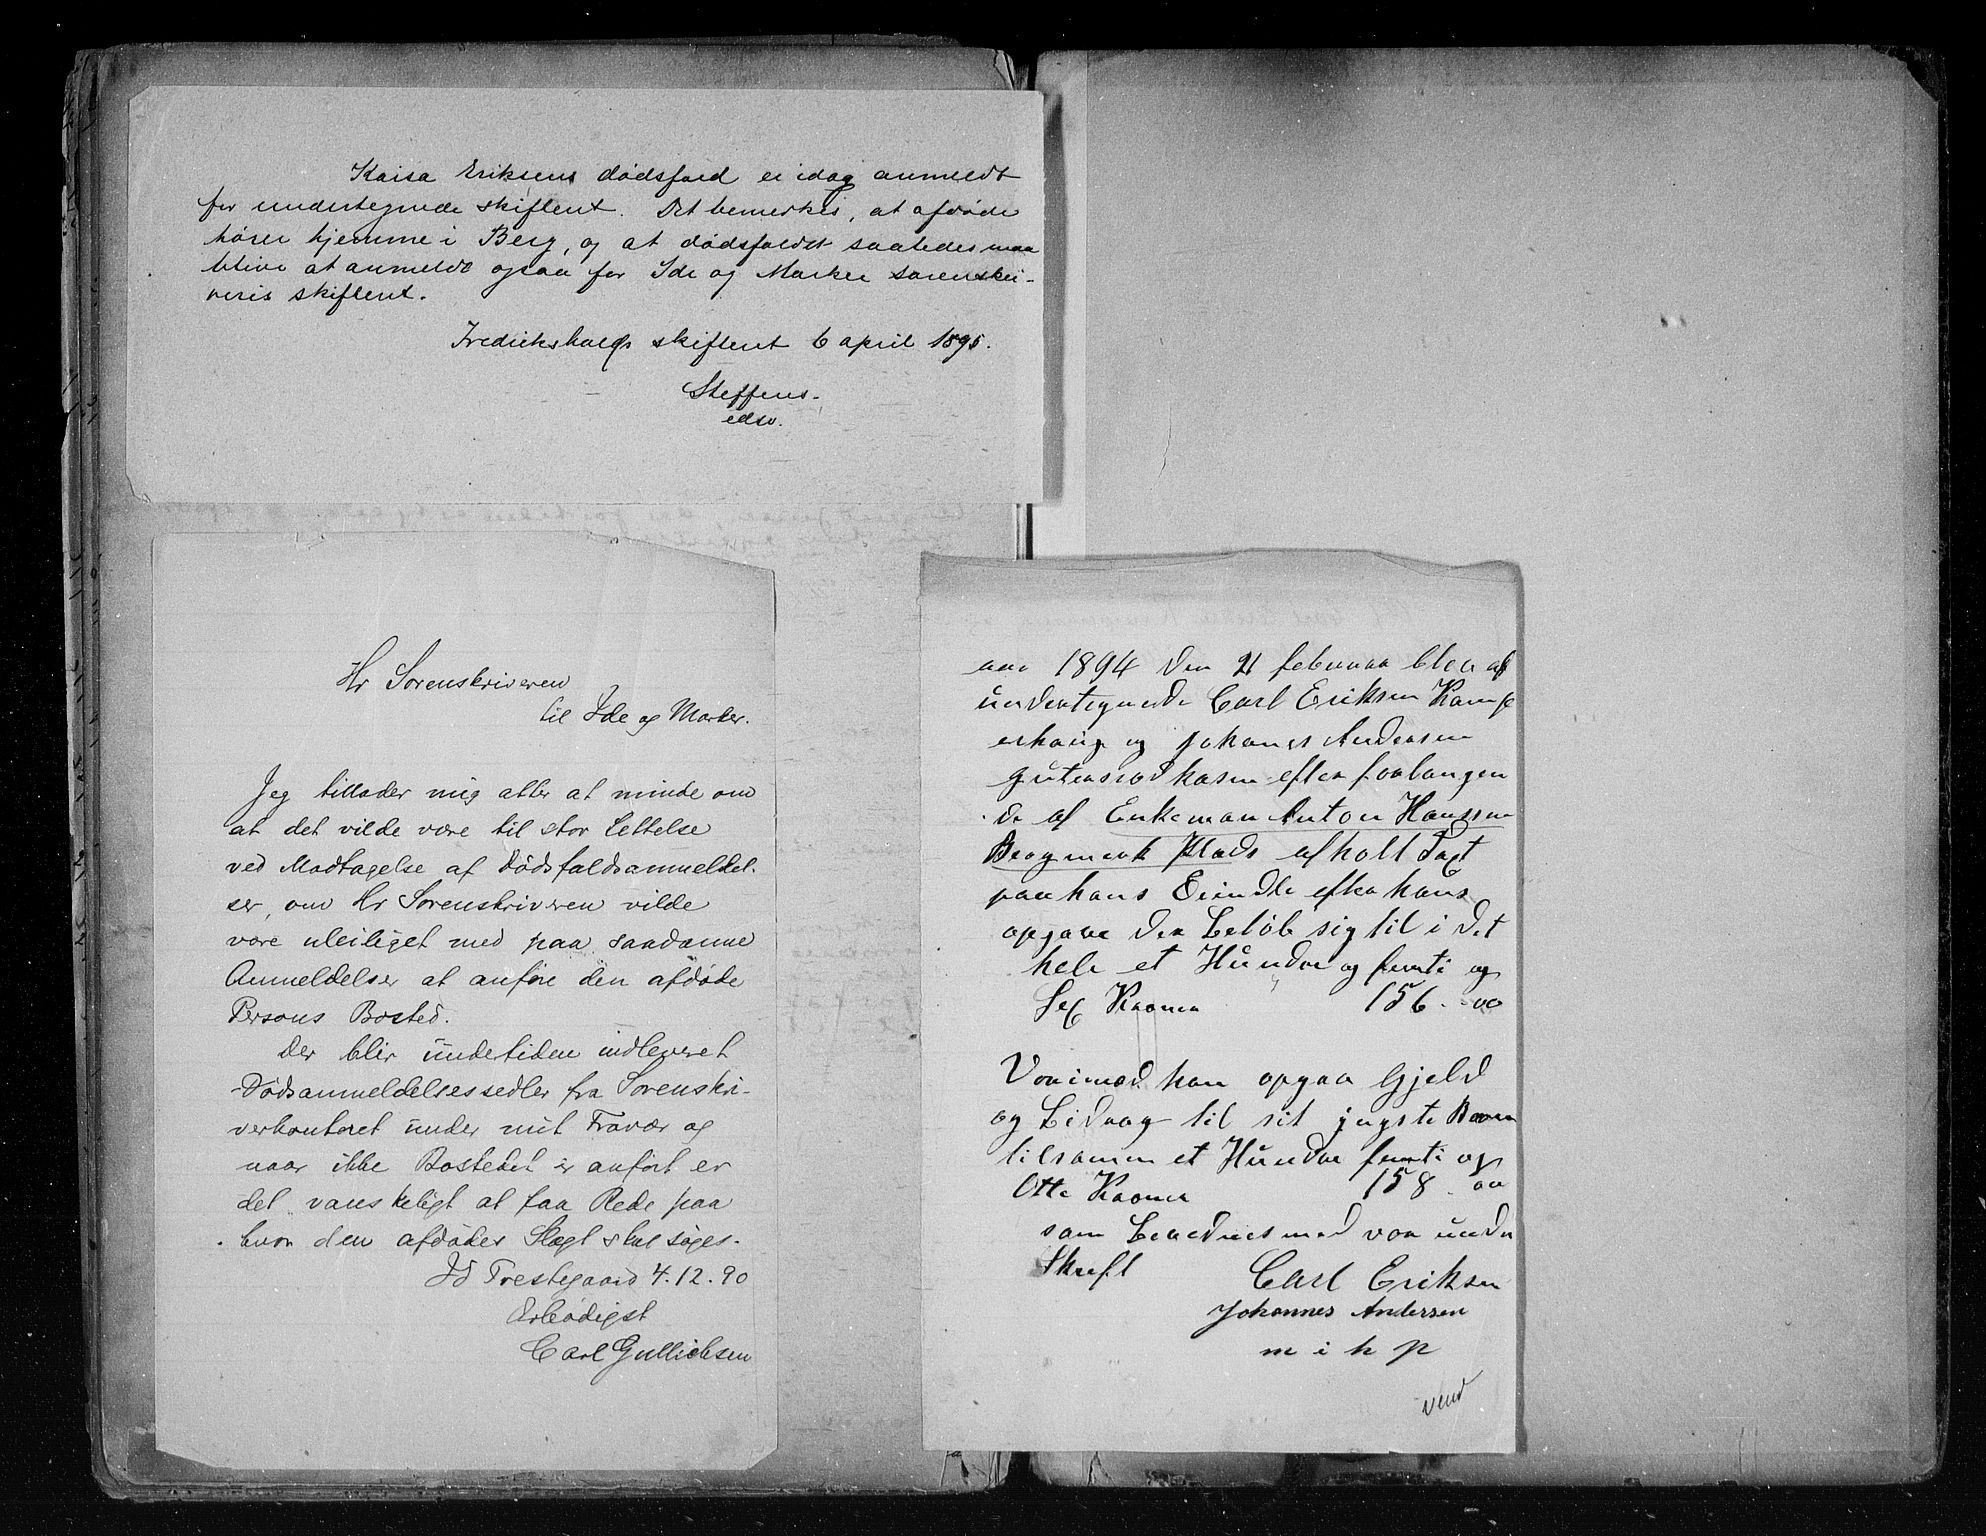 Kaisa Eriksens dødsfald er idag anmeldt
for undertegnede skifteret. Det bemerkes, at afdøde
hører hjemme i Berg, og at dødsfaldet saaledes maa
blive at anmelde ogsaa for Ide og Marker sorenskri-
veris skifteret.
Fredrikshalds skifteret 6 april 1895.
Steffens.
edsv.
Hr Sorenskriveren
til Ide og Marker.
Jeg tillader mig atter at minde om
at det vilde være til stor Lettelse
ved Modtagelse af Dødsfaldsanmeldel-
ser, om Hr Sorenskriveren vilde
være uleiliget med paa saadanne
Anmeldelser at anføre den afdøde
Persons Bosted.
Der blir undetiden indleveret
Dødsanmeldelsessedler fra Sorenskri-
verkontoret under mit Fravær og
naar ikke Bostedet er anført er
det vanskeligt at faa Rede paa
hvor den afdødes Slægt skal søges.
Id Prestegaard 4.12.90
Ærbødigst
Carl Gullichsen
aar 1894 den 21 februaa blev af
undertegnede Carl Eriksen
erhaug og Johanes Andersen
efter forlangen
de af Enkeman Anton Hanssen
Plads afholt Taxt
paa hans Eiendele efter hans
opgave der Beløb sig til i det
hele et Hundre og femti og
Sex Kroner 156.00
Vorimod han opgav Gjeld
og Bidrag til sit yngste Barn
tilsamm et Hundre femti og
Otte Kroner 158.00
som Bevednes med vor under
Skreft Carl Eriksen
Johannes Andersen
m i h p
vend